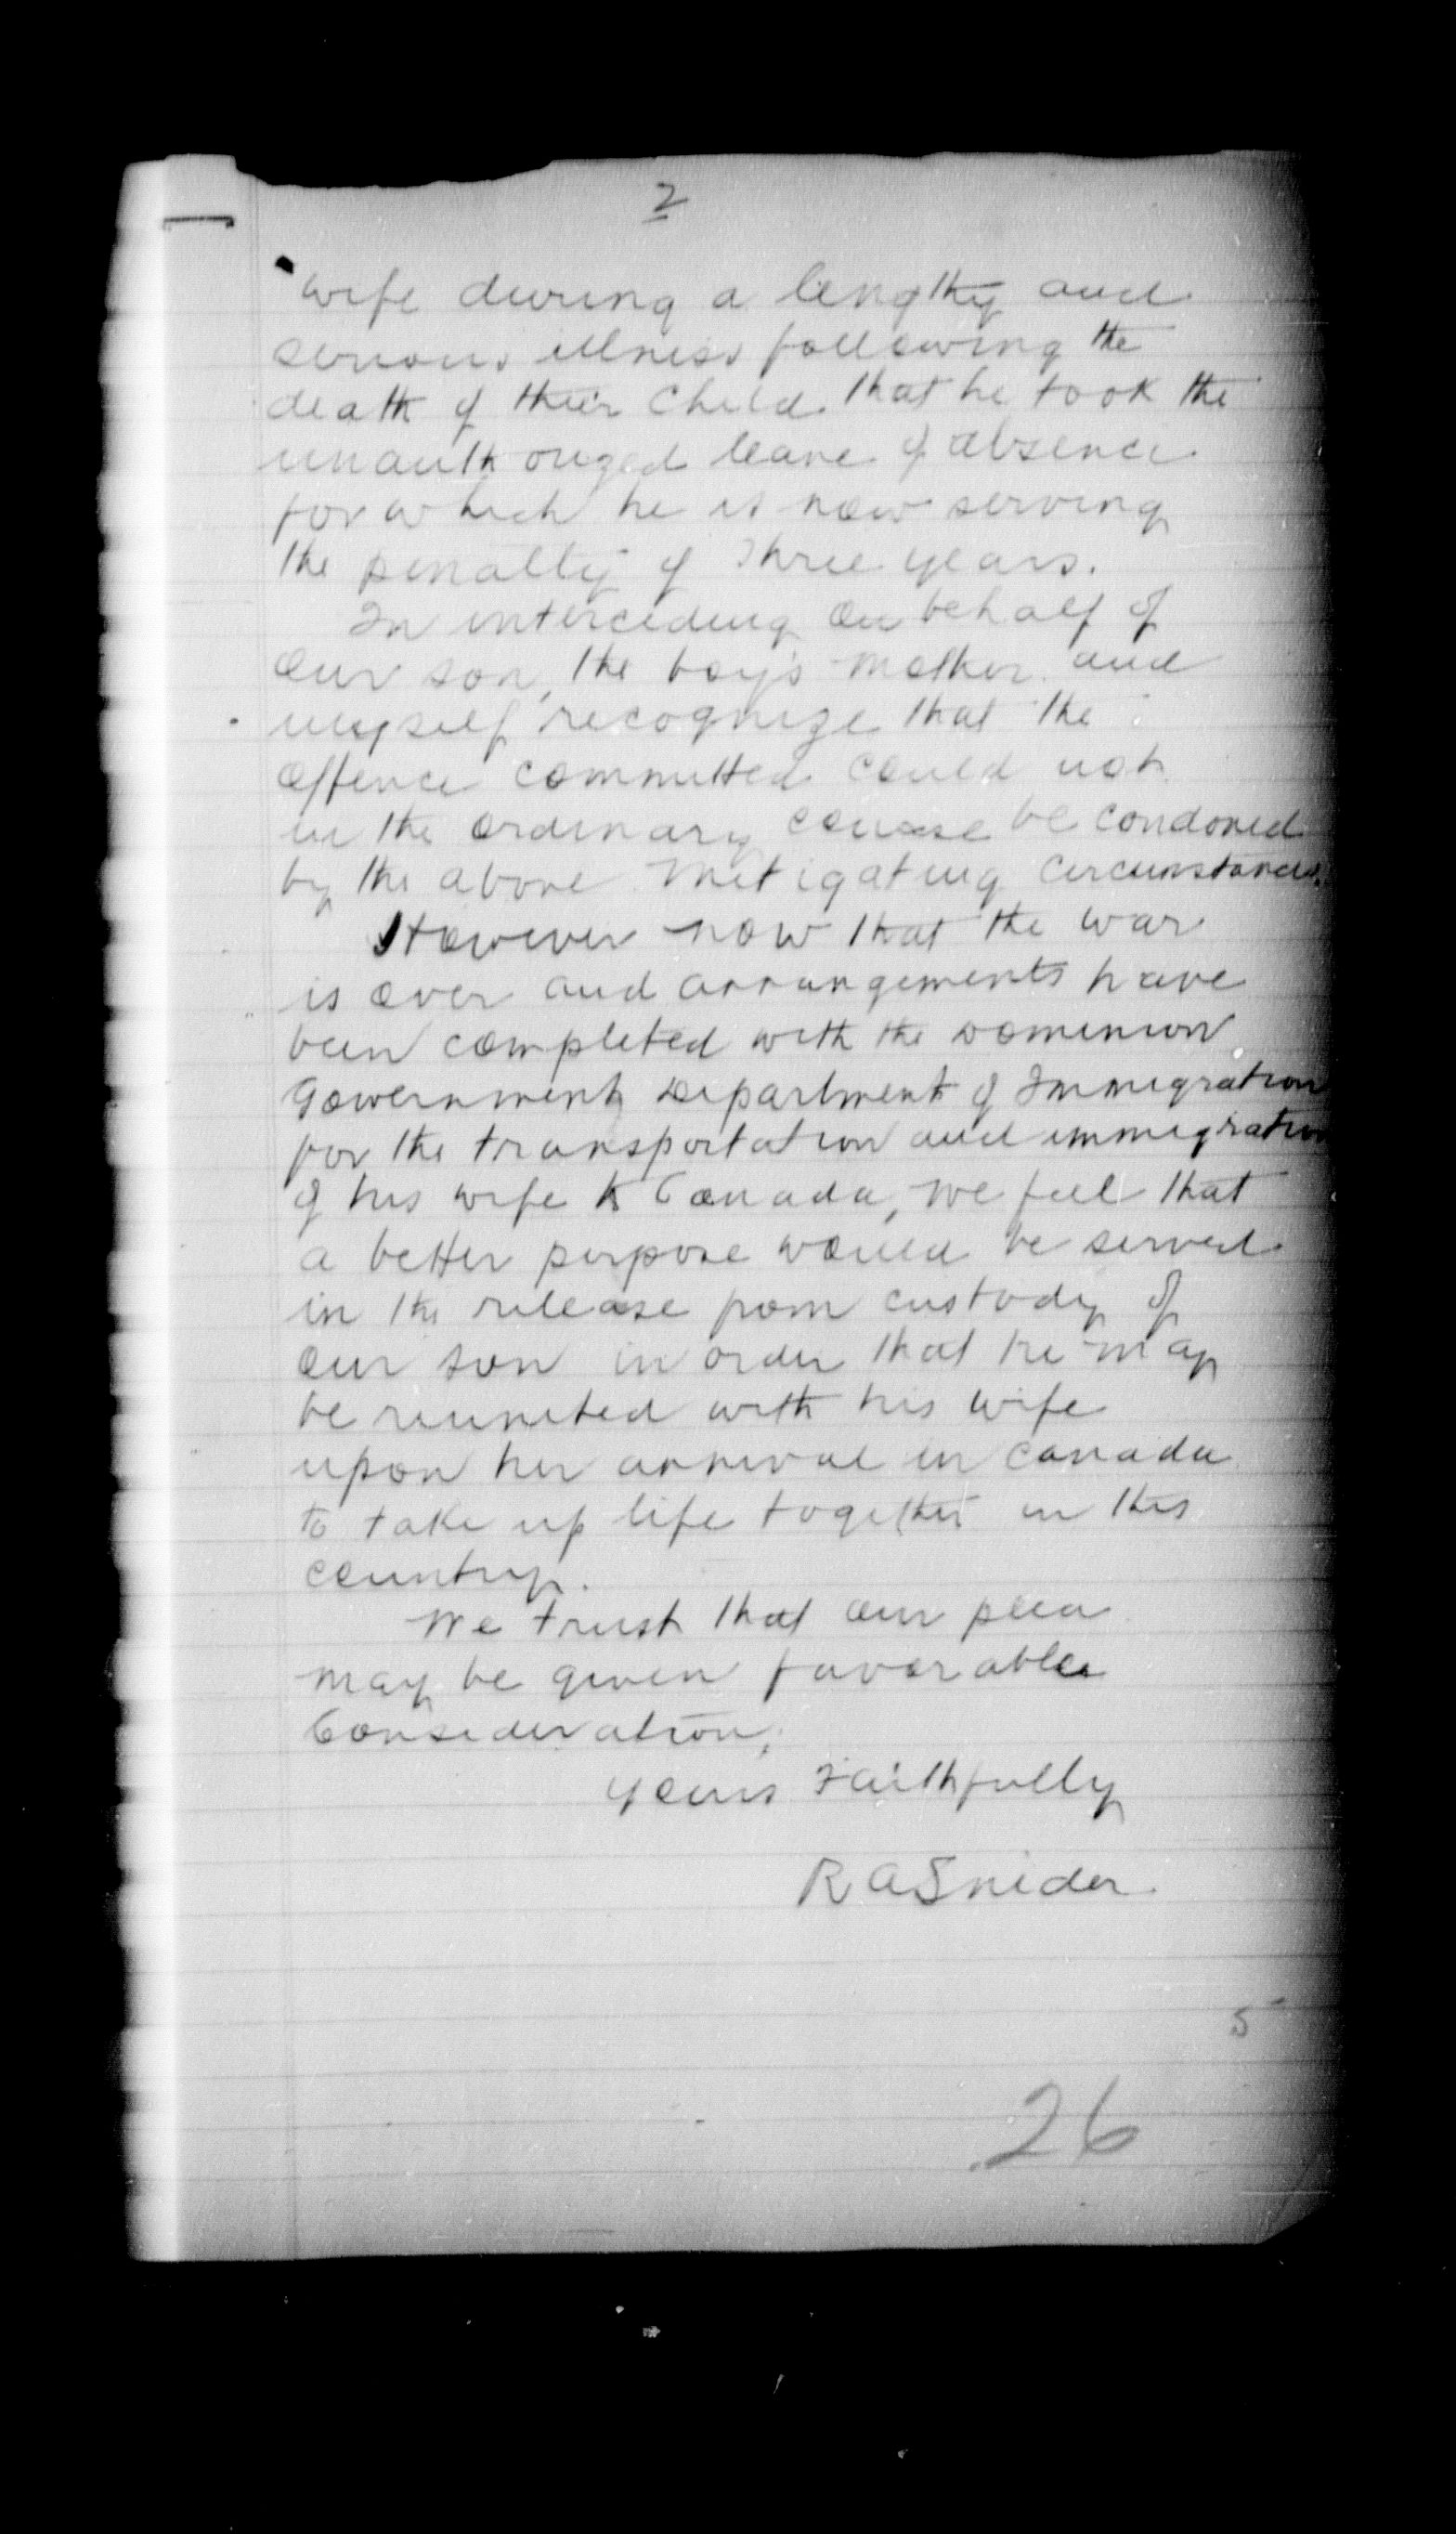 2
wife during a lengthy and
serious illness following the
death of their child that he took the
unauthorized leave of absence
for which he is now serving
the penalty of three years.
In interceding on behalf of
our son, the boy's mother and
myself recognize that the
offence committed could not
in the ordinary course be condoned
by the above mitigating circumstances.
However now that the war
is over and arrangements have
been completed with the Dominion
Government Department of Immigration
for the transportation and immigration
of his wife to Canada, we feel that
a better purpose would be served
in the release from custody of
our son in order that he may
be reunited with his wife
upon her arrival in Canada
to take up life together in this
country.
We trust that our plea
may be given favorable
Consideration,
Yours Faithfully
R A Snider
5
26